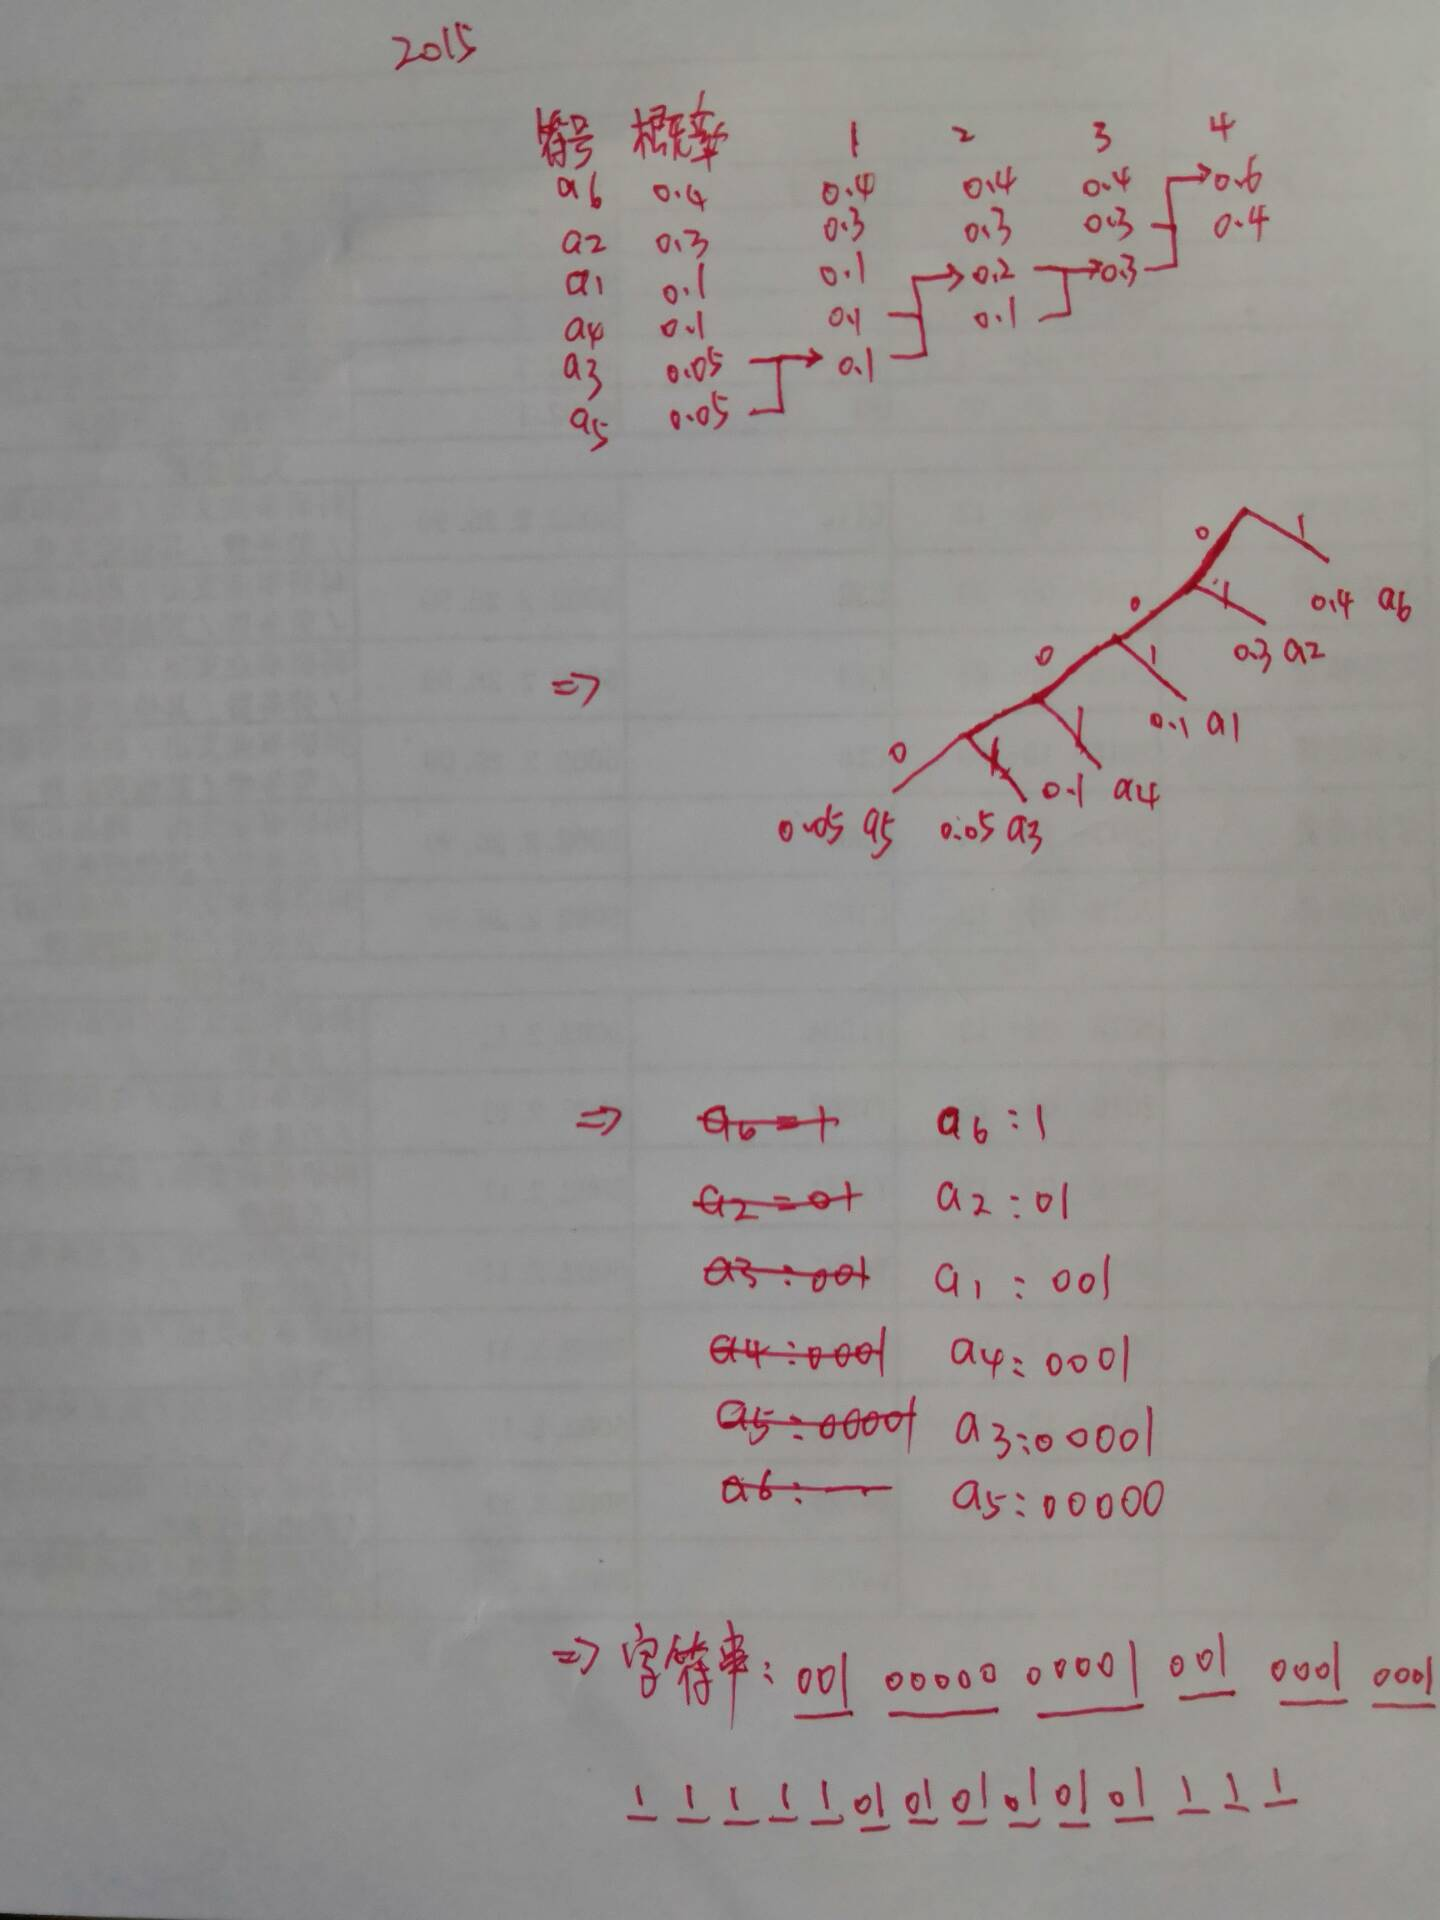 2015
符号 概率 1 2 3 4
a6 0.4 0.4 0.4 0.4 0.6
a2 0.3 0.3 0.3 0.3 0.4
a1 0.1 0.1 0.2 0.3
a4 0.1 0.1 0.1
a3 0.05 0.1
a5 0.05
0 1
0 1 0.4 a6
0 1 0.3 a2
⇒ 1 0.1 a1
0 1 0.1 a4
0.05 a5 0.05 a3
⇒ a6=1 a6:1
a2=01 a2:01
a3:001 a1:001
a4:0001 a4:0001
a5:00001 a3:00001
a6: a5:00000
⇒ 字符串: 001 00000 00001 001 0001 0001
1 1 1 1 1 01 01 01 01 01 01 1 1 1